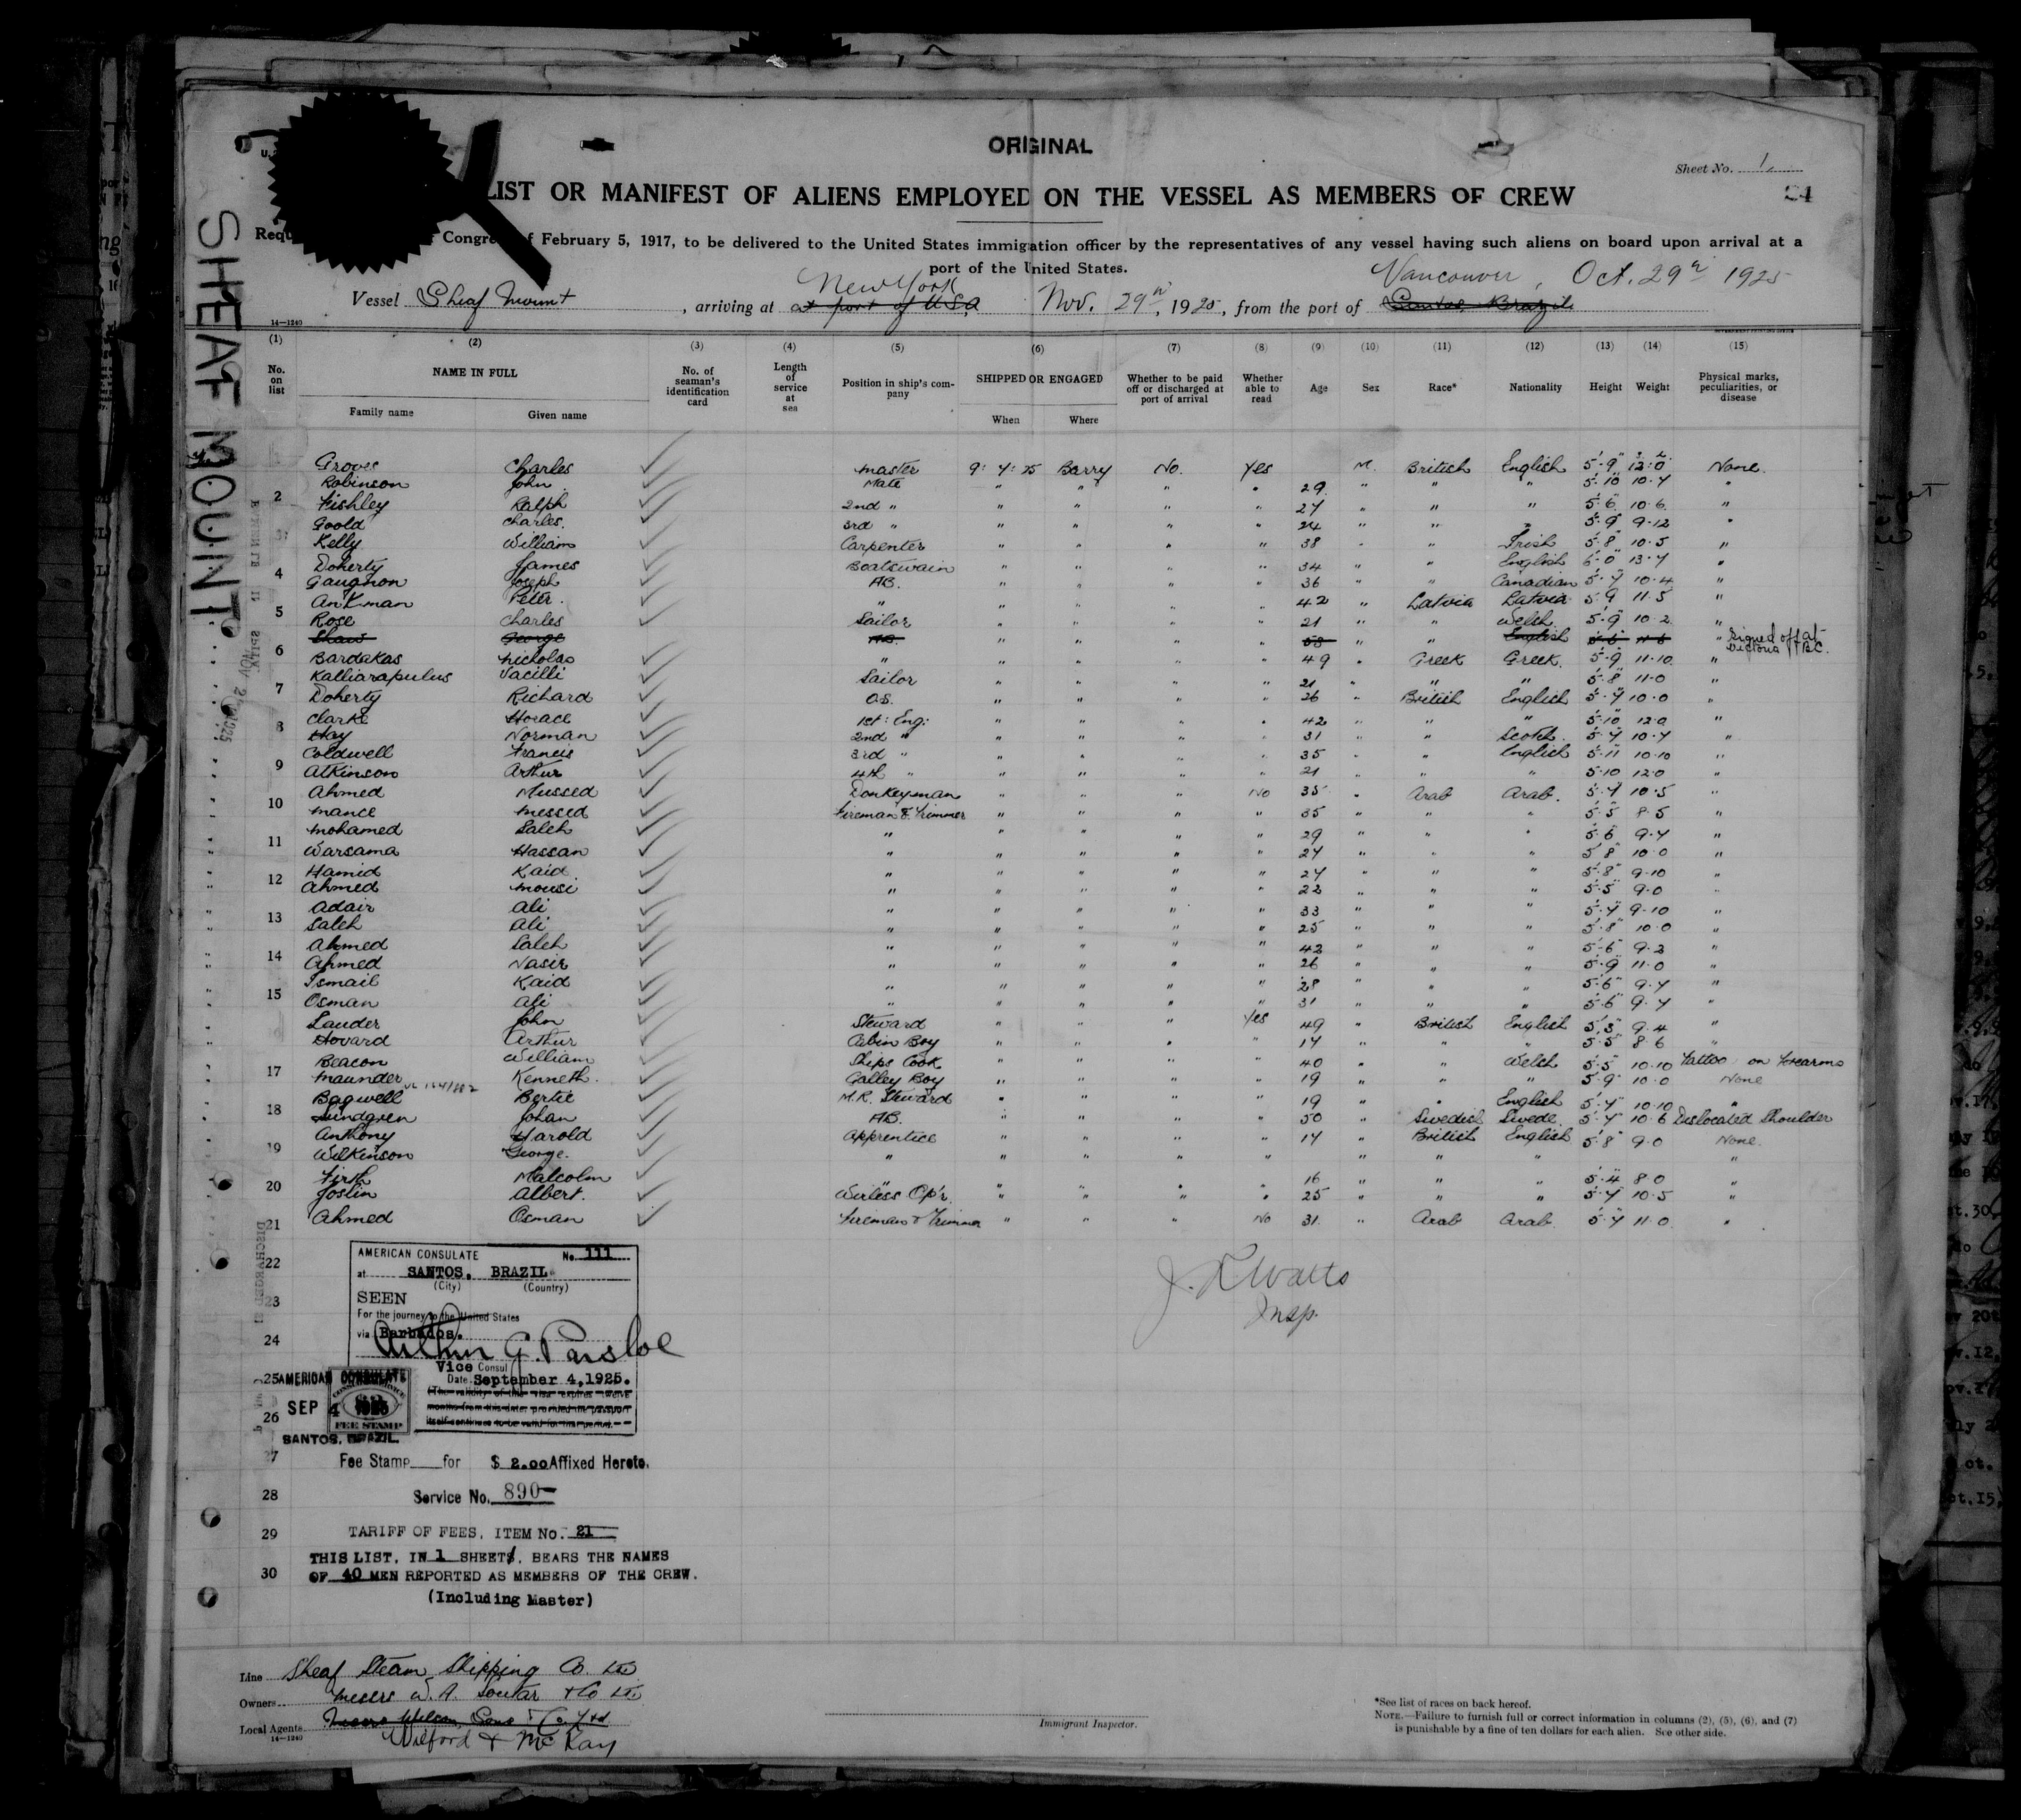 ORIGINAL
Sheet No. 1.
LIST OR MANIFEST OF ALIENS EMPLOYED ON THE VESSEL AS MEMBERS OF CREW
24
Requ Congre f February 5, 1917, to be delivered to the United States immigration officer by the representatives of any vessel having such aliens on board upon arrival at a
port of the United States.
New York Vancouver, Oct. 29th 1925
Vessel Sheaf Mount, arriving at at port of USA Nov. 29th, 1925, from the port of Santos Brazil
14—1240
SHEAF MOUNT
(1) (2) (3) (4) (5) (6) (7) (8) (9) (10) (11) (12) (13) (14) (15)
No. on list NAME IN FULL Family name Given name No. of seaman's identification card Length of service at sea Position in ship's company SHIPPED OR ENGAGED When Where Whether to be paid off or discharged at port of arrival Whether able to read Age Sex Race* Nationality Height Weight Physical marks, peculiarities, or disease
Groves Charles Master 9:4:25 Barry No. Yes M. British English 5'-9" 12:0 None.
Robinson John Mate " " " " 29 " " " 5'-10" 10-7 "
2 Fishley Ralph 2nd " " " " " 27 " " " 5'-6" 10-6 "
Goold Charles. 3rd " " " " " 24 " " " 5'-9" 9-12 "
3 Kelly William Carpenter " " " " 38 " " Irish 5'-8" 10-5 "
Doherty James Boatswain " " " " 34 " " English 6'-0" 13-7 "
4 Gaugnon Joseph AB. " " " " 36 " " Canadian 5'-7" 10-4 "
Ankman Peter. " " " " " 42 " Latvia Latvia 5-9 11-5 "
5 Rose Charles Sailor " " " " 21 " " Welsh 5'-9" 10-2 "
Shaw George AB. " " " " 58 " " English " Signed off at Victoria BC.
6 Bardakas Nicholas " " " " " 49 " Greek Greek. 5'-9 11-10 "
Kalliarapulus Vacilli Sailor " " " " 21 " " " 5'-8" 11-0 "
7 Doherty Richard O.S. " " " " 26 " British English 5'-7" 10-0 "
Clarke Horace 1st: Eng: " " " " 42 " " " 5'-10" 12-0 "
8 Hay Norman 2nd " " " " " 31 " " Scotch. 5'-7" 10-7 "
Coldwell Francis 3rd " " " " " 35 " " English 5'-11" 10-10 "
9 Atkinson Arthur 4th " " " " " 21 " " " 5-10 12-0 "
Ahmed Mussed Donkeyman " " " No 35 " Arab Arab. 5'-7 10-5 "
10 Mance Messed Fireman & Trimmer " " " " 35 " " " 5'-5" 8-5 "
Mohamed Saleh " " " " " 29 " " " 5'-6" 9-7 "
11 Warsama Hassan " " " " " 27 " " " 5'8" 10-0 "
Hamid Kaid " " " " " 27 " " " 5'-8" 9-10 "
12 Ahmed Mousi " " " " " 22 " " " 5'-5" 9-0 "
Adair Ali " " " " " 33 " " " 5'-7" 9-10 "
13 Saleh Ali " " " " " 25 " " " 5'-8" 10-0 "
Ahmed Saleh " " " " " 42 " " " 5'-6" 9-2 "
14 Ahmed Nasir " " " " " 26 " " " 5'-9" 11-0 "
Ismail Kaid " " " " " 28 " " " 5'-6" 9-7 "
15 Osman Ali " " " " " 31 " " " 5'-6" 9-7 "
Lauder John Steward " " " Yes 49 " British English 5'5" 9-4 "
Hovard Arthur Cabin Boy " " " " 17 " " " 5'5" 8-6 "
Beacon William Ships Cook " " " " 40 " " Welsh 5'-5" 10-10 Tattoo on Forearms
17 Maunder Kenneth. Galley Boy " " " " 19 " " " 5'-9" 10-0 None
Bagwell Bertie M.R. Steward " " " " 19 " " English 5'-7" 10-10 "
18 Lundgren Johan AB. " " " " 50 " Swedish Swede. 5'-7" 10-6 Dislocated Shoulder
Anthony Harold Apprentice " " " " 17 " British English 5'-8" 9-0 None.
19 Wilkinson George. " " " " " " " " "
Firth Malcolm " " " " 16 " " " 5'-4" 8-0 "
20 Joslin Albert. Wirless Op'r. " " " " 25 " " " 5'-7" 10-5 "
21 Ahmed Osman Fireman & Trimmer " " " No 31. " Arab Arab 5'-7" 11-0 "
22
23
24
25
26
27
28
29
30
AMERICAN CONSULATE No. 111
at SANTOS, BRAZIL
(City) (Country)
SEEN
For the journey to the United States
via Barbados.
Arthur G. Parsloe
Vice Consul
Date September 4, 1925.
(The validity of this visa expires twelve
months from this date, provided the passport
itself continues to be valid for that period.
AMERICAN CONSULATE
SEP 4 1925
FEE STAMP
SANTOS, BRAZIL
Fee Stamp for $ 2.00 Affixed Hereto.
Service No. 890
TARIFF OF FEES, ITEM No. 21
THIS LIST, IN 1 SHEETS, BEARS THE NAMES
OF 40 MEN REPORTED AS MEMBERS OF THE CREW.
(Including Master)
J. R. Watts
Insp.
Line Sheaf Steam Shipping Co. Ltd
Owners Messrs W. A. Soutar & Co Ltd
Local Agents Messrs Wilson, Sons & Co. Ltd
Wilford & McKay
14—1240
Immigrant Inspector.
*See list of races on back hereof.
NOTE.—Failure to furnish full or correct information in columns (2), (5), (6), and (7)
is punishable by a fine of ten dollars for each alien. See other side.